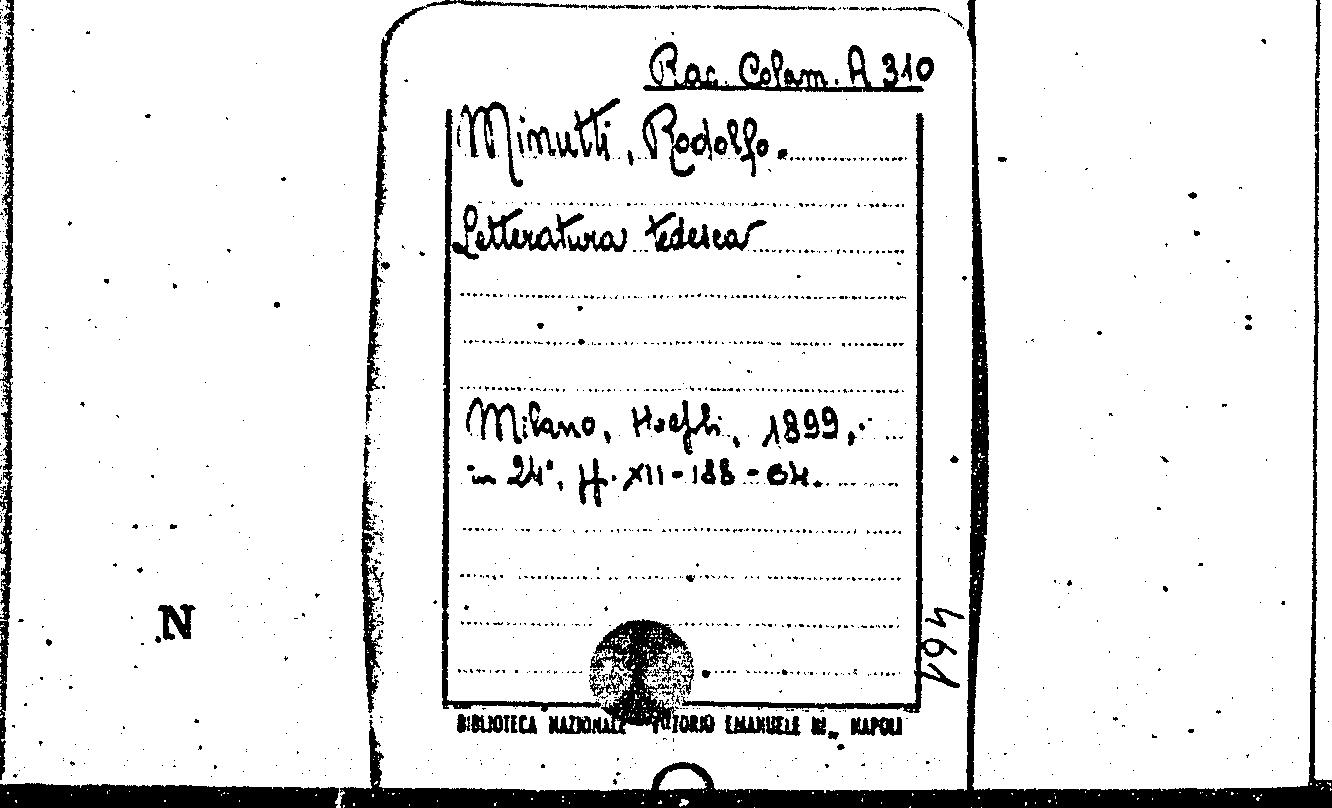 Rac. Colam. A 310
Minutti, Rodolfo.
Letteratura tedesca
Milano, Hoepli, 1899,
in 24°, pp. XII-188-64.
N
461
BIBLIOTECA NAZIONALE VITTORIO EMANUELE III., NAPOLI